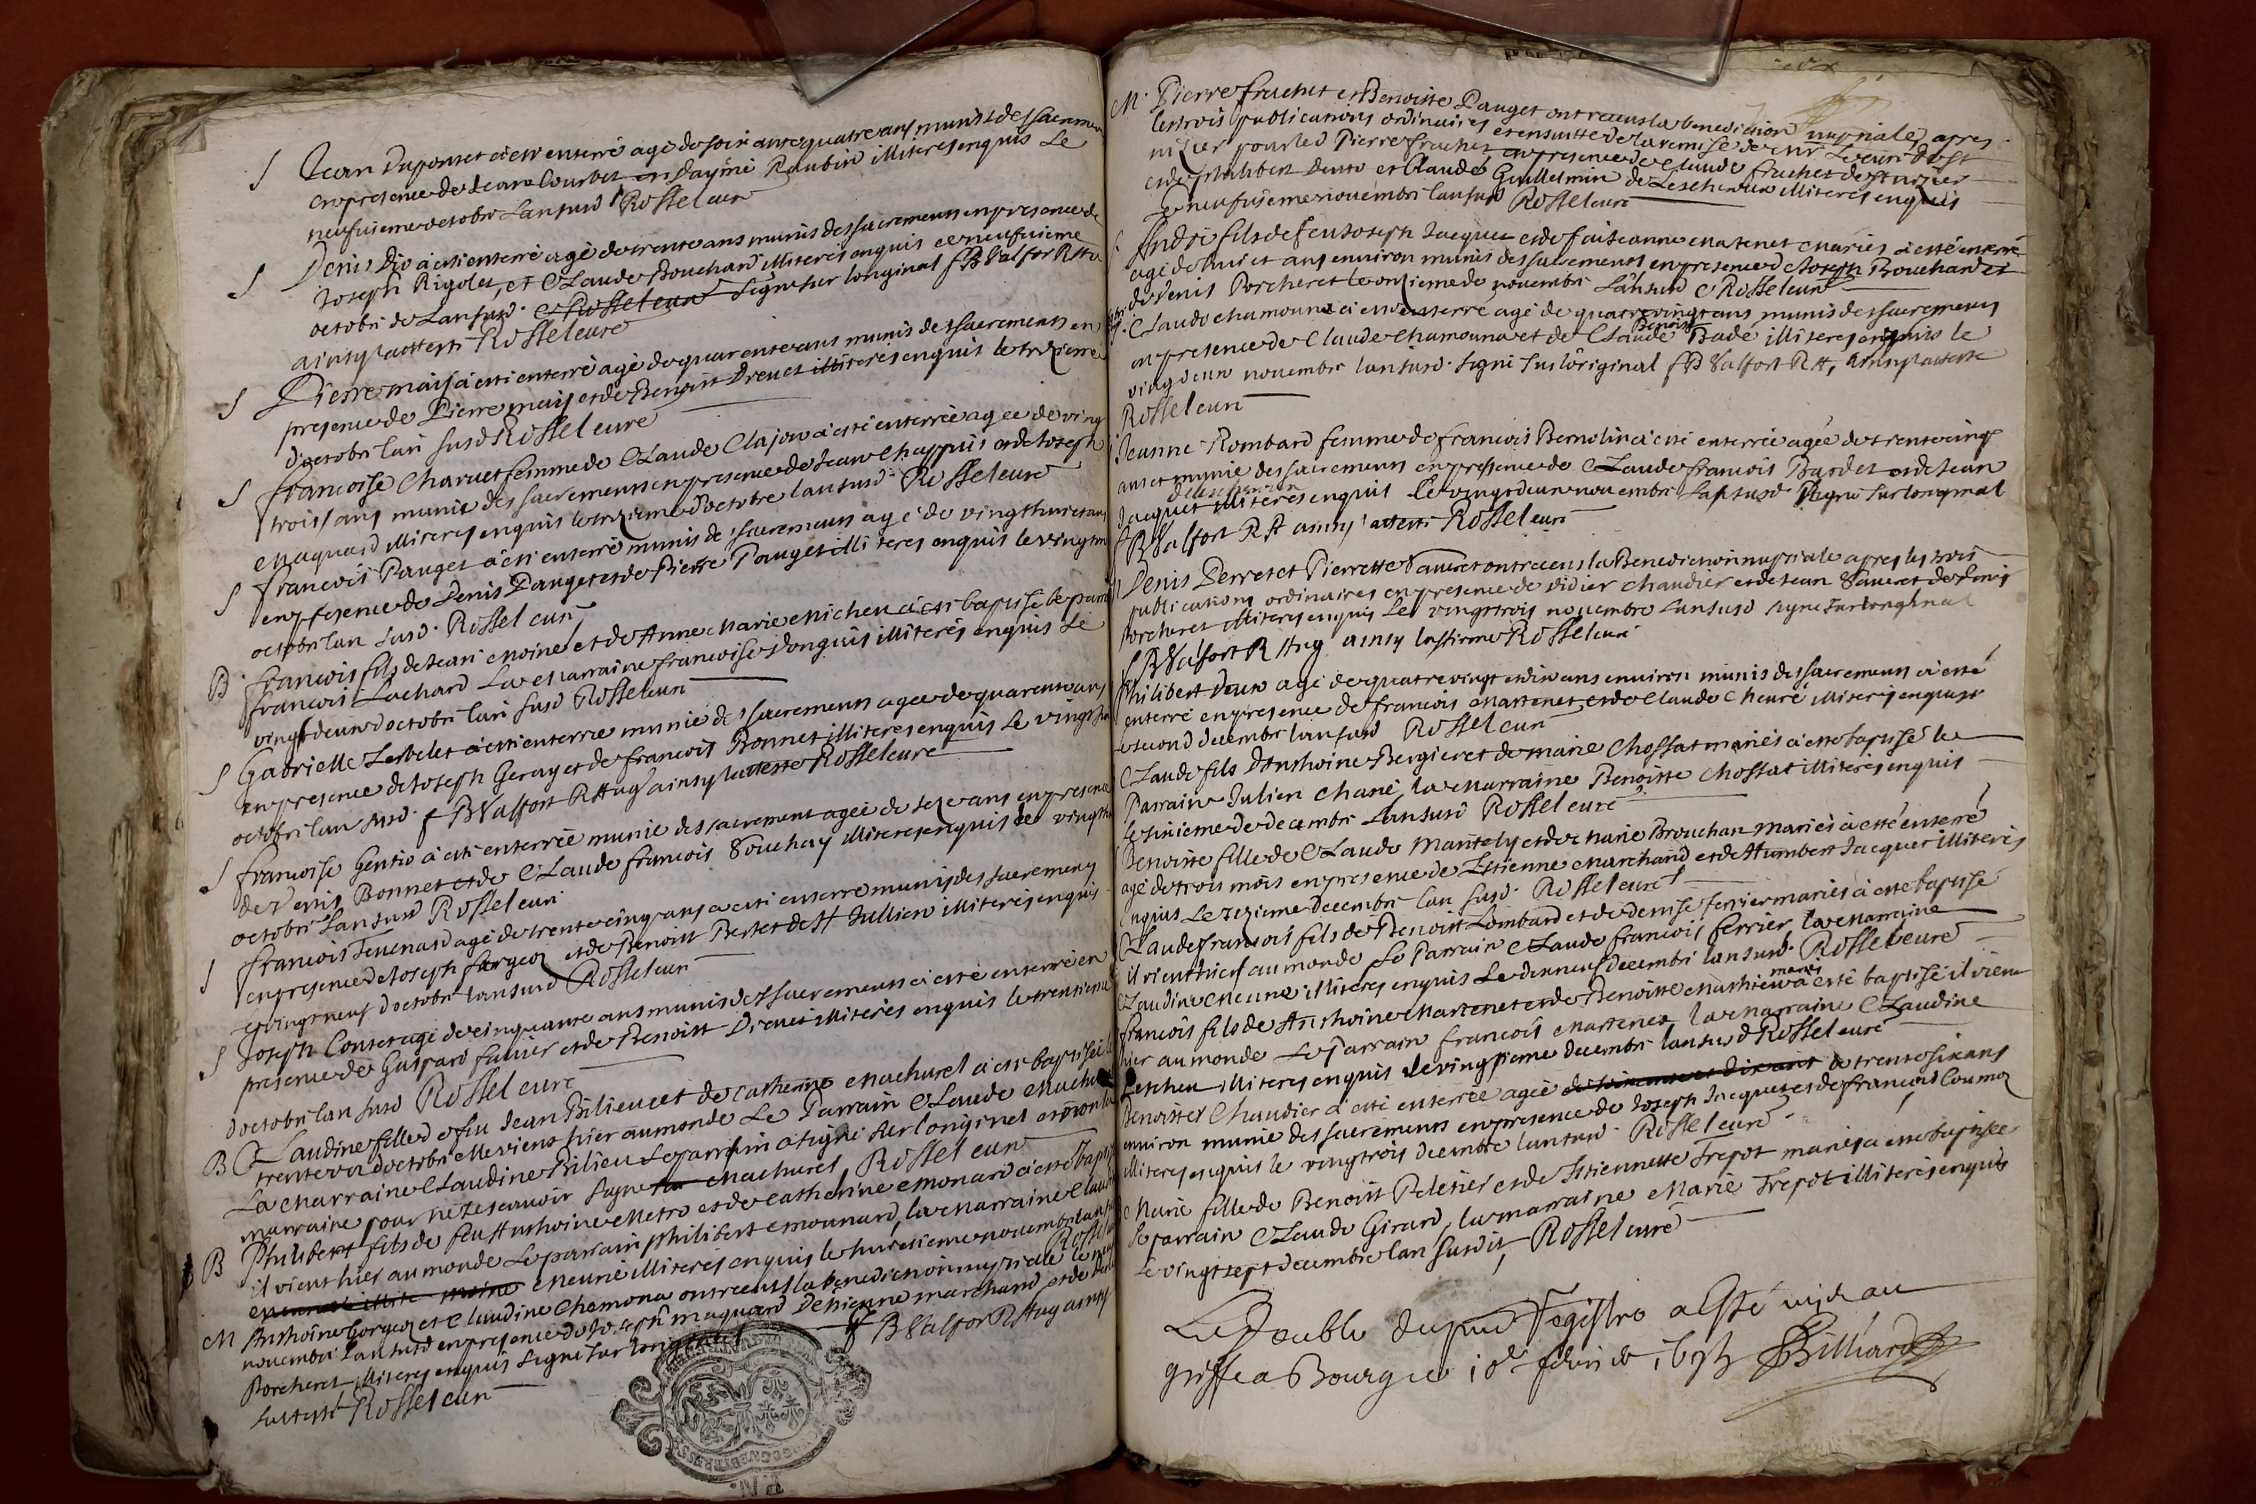 S Jean Duponset a esté enterré agé de soixante quatre ans munis des sacremens
en presence de Jean Courbet et d'aymé Raubin illiterés enquis Le
neufuieme octobre Lan susd Rossel curé
S Denis Dio à esté enterré agé de trente ans munis des sacremens en presence de
Joseph Rigolet, et Claude Bouchard illiterés enquis ce neufuieme
octobre de Lan susd. Rossel curé signé sur longinal f B Valfort R
ainsy l'atteste Rossel curé
S Pierre mais à esté enterré agé de quarente ans munis des sacremens en
presence de Pierre mais et de Benoist Drevet illiterés enquis le trezieme
d'octobre lan susd Rossel curé
S francoise Charvet femme de Claude Clajon à esté enterrée agée de vingt
trois ans munie des sacremens en presence de Jean Chappuis et de Joseph
Maquard illiterés enquis le trezieme d'octobre lan susd. Rossel curé
S francois Pauget à esté enterré munis des sacremens agé de vingt huict ans
en presence de Denis Pauget et de Pierre Pauget illiterés enquis le vingt
octobre lan susd. Rossel curé
B francois fils de Jean Moine et de Anne Marie Micheu à esté baptisé le parrain
francois Lachard La Marraine francoise Donguis illiterés enquis Le
vingt deux d'octobre lan susd Rossel curé
S Gabrielle Lerbelet à esté enterre munie des sacremens agée de quarente ans
en presence de Joseph Geray et de francois Bonnet illiterés enquis Le vingt
octobre lan susd. f B Valfort R Aug ainsy l'atteste Rossel curé
S francoise Gentio à esté enterrée munie des sacrement agée de seze ans en presence
de Denis Bonnet et de Claude francois Souchay illiteres enquis le vingt
octobre lan susd Rossel curé
S francois Tevenard agé de trente cinq ans à esté enterre munis des sacremens
en presence de Joseph fargeot et de Benoist Bertet de St Jullien illiterés enquis
le vingt neuf d'octobre lan susd Rossel curé
S Joseph Conset agé de cinquante ans munis des sacremens à esté enterré en
presence de Gaspard favier et de Benoist Drevet illiterés enquis le trentieme
d'octobre lan susd Rossel curé
B Claudine fille d efeu Jean Prilieu et de catherine Machurel à esté baptisée
trente un d'octobre elle vient hier au monde Le Parrain Claude Machurel
La Marraine Claudine Prilieu Le parrain à signé sur longinel et non la
marraine pour ne le scavoir signe Machurel Rossel curé
B Philibert fils de feu Anthoine Metro et de Catherine Monard à esté baptisé
il vient hier au monde Le parrain philibert Monnard, la Marraine Claudine
Meunié illiterés enquis le huictieme nouembre lan susd Rossel
M Anthoine Gorgeot et Claudine Chamona ont receus la benediction nuptiale le neuf
nouembre lan susd en presence de Joseph maquard d'Estienne marchand et de Denis
Porcheret illiteres enquis signe sur longinal f B Valfort R Aug ainsy
l'atteste Rossel curé
M. Pierre fruchet et Benoiste Pauget ont receus la benediction nuptiale, apres
les trois publications ordinaires et ensuitte de la remise de Mr Le curé de St
nizier pour led Pierre fruchet, en presence de Claude fruchet de St nizier
et de philibert Deux et Claude Guillelmin de Lescheroux illiterés enquis
Le neufuieme nouembre lan susd Rossel curé
S André fils de feu Joseph Jacquet et de fait Jeanne Martenet Mariés à esté enterré
agé de huict ans environ munis des sacremens en presence de Joseph Bouchard et
de Denis Porcheret le onzieme de novembre Lan susd Rossel curé
S. Claude chamouna à esté enterré agé de quatre vingt ans munis des sacremens
en presence de Claude Chamouna et de Claude Benoist Badé illiteres enquis le
vingt deux nouembre lan susd. signé sur l'original f B Valfort R A, ainsy l'atteste
Rossel curé
Jeanne Rombard femme de francois Bernolin à esté enterrée agée de trente cinq
ans et munie des sacremens en presence de Claude francois Bardet et de Jean
Jacquet illiteres enquis Le vingt deux nouembre Lan susd. signé sur longinal
f B Valfort R A ainsy l'atteste Rossel curé
M Denis Perret et Pierrette Sauvret ont receus la Benediction nuptiale apres les trois
publications ordinaires en presence de Didier chaudier et de Jean Sauvret de Denis
Porcheret illiteres enquis Le vingt trois nouembre lan susd signé sur longinal
f B Valfort R Aug ainsy l'affirme Rossel curé
Philibert Deux agé de quatre vingt et dix ans environ munis des sacremens à esté
enterré en presence de francois Martenet et de Claude Cheuré illiteres enquis
le second decembre lan susd Rossel curé
Claude fils D'Anthoine Bergier et de marie Chossat mariés à esté baptisé le
Parrain Julien chané, la Marraine Benoiste chossat illiterés enquis
le sixieme de decembre Lan susd Rossel curé
Benoiste fille de Claude Mantely et de Marie Brouchan mariés à esté enterré
agé de trois mois en presence de Estienne Marchand et de Humbert Jacquet illiterés
enquis Le seizieme decembre lan susd. Rossel curé
Claude francois fils de Benoist Lombard et de denise ferrier mariés à esté baptisé
il vient hier au monde Le Parrain Claude francois ferrier, la Marraine
Claudine Meune illiterés enquis Le dixneuf decembre lan susd. Rossel curé
francois fils de Anthoine Martenet et de Benoitte Mathieu mariés à esté baptisé il vient
hier au monde Le Parrain francois Martenet la Marraine Claudine
Lescheu illiteres enquis le vingtieme decembre lan susd Rossel curé
Benoitte Chaudier à esté enterrée agée de soixante et dix huit de trente six ans
environ munie des sacremens en presence de Joseph Jacquet et de francois Coumoz
illiteres enquis le vingt trois decembre lan susd. Rossel curé
Marie fille de Benoist Peletier et de Estiennette Trepot mariés à esté baptisée
le parrain Claude Girard, la marraine Marie Trepot illiterés enquis
le vingt sept decembre lan susdit, Rossel curé
Le double du pnt Registre a esté mis au
greffe a Bourg ce 18e febvrier 1693 Billiard